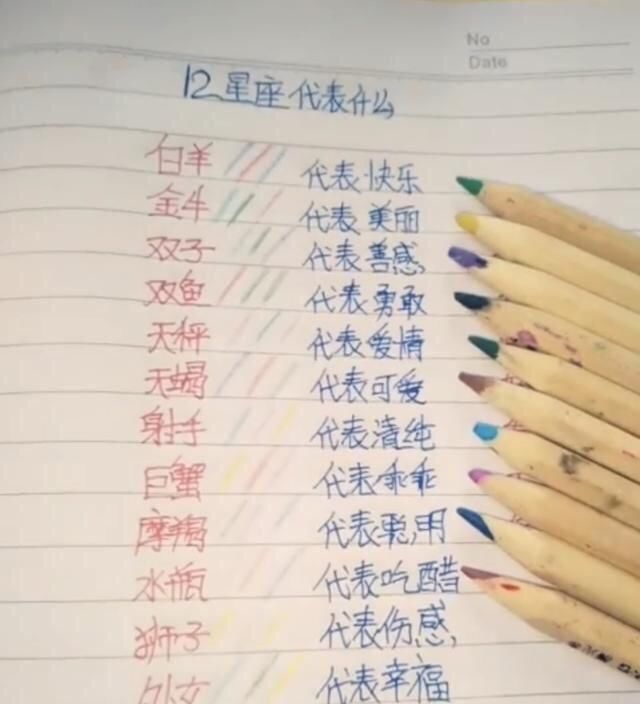 No
Date
12星座代表什么
白羊 代表快乐
金牛 代表美丽
双子 代表善感
双鱼 代表勇敢
天秤 代表爱情
天蝎 代表可爱
射手 代表清纯
巨蟹 代表乖乖
摩羯 代表聪明
水瓶 代表吃醋
狮子 代表伤感
处女 代表幸福